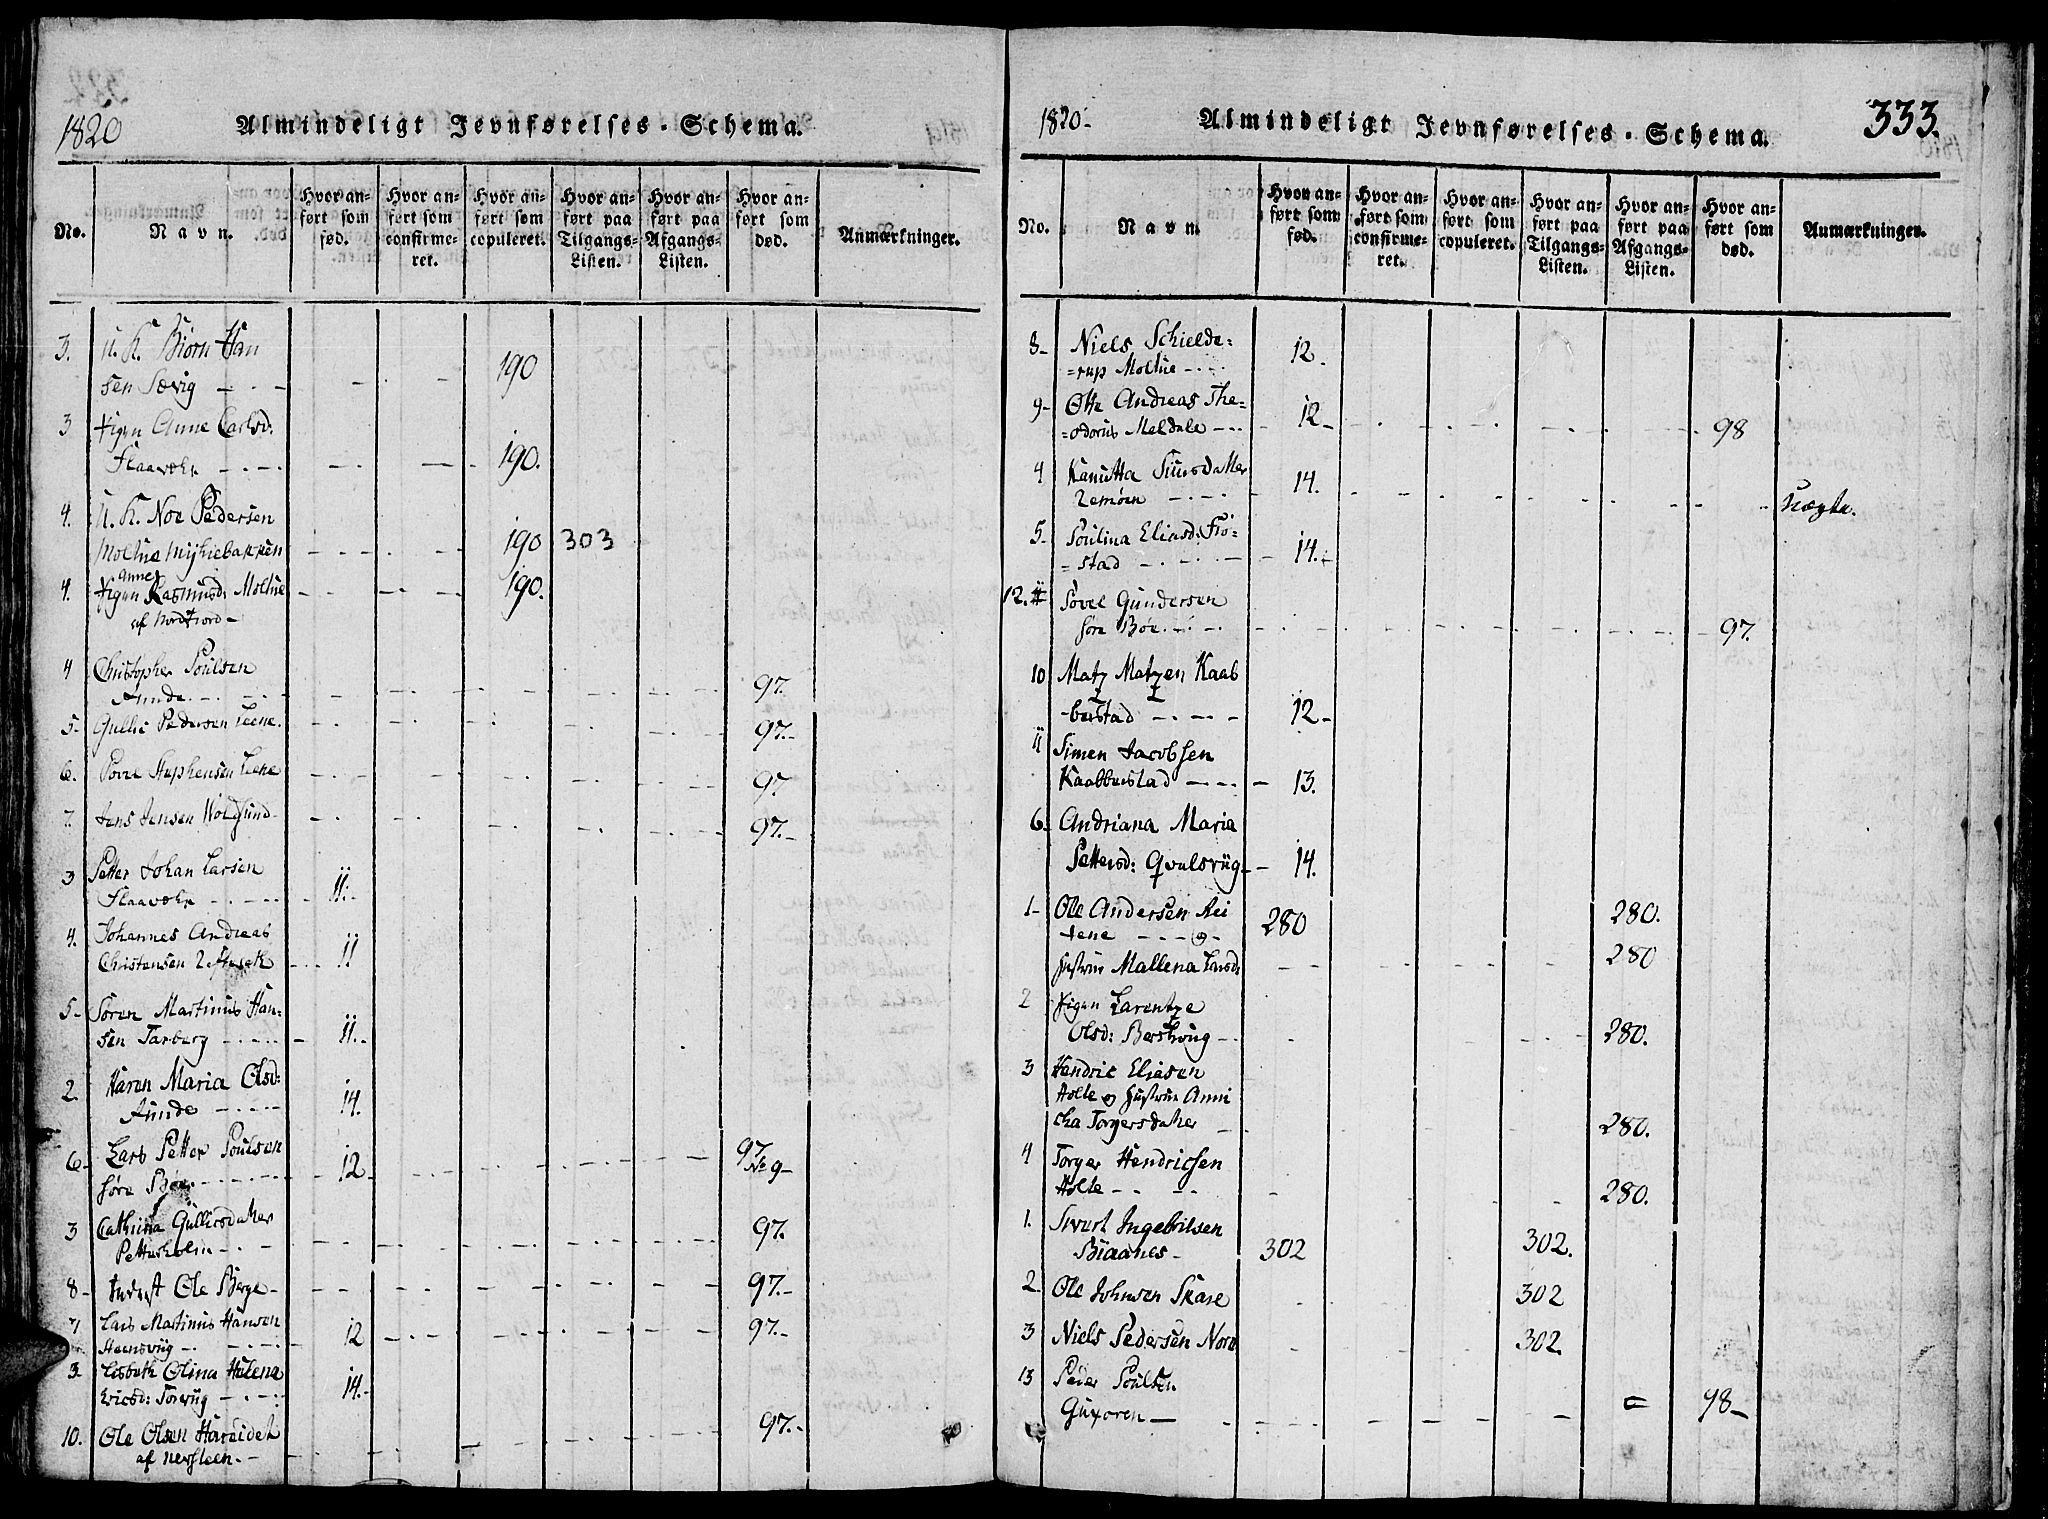 1820
Almindeligt Jevnførelses-Schema.
No.
Navn.
Hvor anført som fød.
Hvor anført som confirmeret.
Hvor anført som copuleret.
Hvor anført paa Tilgangs-Listen.
Hvor anført paa Afgangs-Listen.
Hvor anført som død.
Anmærkninger.
3. U. K. Biörn Han
sen Sævig - - - 190
3 Pigen Anne Carlsd:
- - - 190.
4. U. K. Noe Pedersen
Moltue - - - 190 303
4. Pigen Anne Rasmusd: Moltue 190.
af Nordfiord -
4 Christopher Poulsen
Runde - - - 97.
5- Gullic Pedersen Leene. - - 97.-
6. Povel Stephensen Leene - - 97
7. Jens Jensen - - 97.-
3 Petter Johan Larsen
- - - 11.-
4. Johannes Andreas
Christensen - - 11
5- Sören Martinus Han=
sen Tarberg - - - 11.-
2. Karen Maria Olsd:
Runde - - - 14.
6- Lars Petter Poulsen
Söre Böe - - - 12- 97 No 9-
3 Cathrina Gullicsdatter
Petterholm - - 97.
8- Indrest Ole Berge - - 97.-
7 Lars Martinus Hansen
- - - 12 - - 97.-
3 Lisbeth Olina Helena
Ericsd: - - 14.-
10. Ole Olsen Hareidet 97.-
af
1820-
Almindeligt Jevnførelses-Schema.
333.
No.
Navn.
Hvor anført som fød.
Hvor anført som confirmeret.
Hvor anført som copuleret.
Hvor anført paa Tilgangs-Listen.
Hvor anført paa Afgangs-Listen.
Hvor anført som død.
Anmærkninger.
8- Niels Schielde=
=rup Moltue - - 12-
9- Otte Andreas The=
=odorus Meldale - - 12- - - 98
4 Kanutta
- - - 14. - -
5- Poulina Eliasd: Frö=
=stad - - - 14.-
12. Povel Gundersen
Söre Böe - - - 97.
10 Matz Matzen Kaab
-berstad - - - 12-
11 Simen Jacobsen
Kaabberstad - - - 13.
6- Andriana Maria
Pettersd: - - 14.
1- Ole Andersen Rei
tene - - - og - 280 280.
Hustrue Mallena Larsd: - - 280
2 Pigen Larentze
Olsd: - - 280.
3 Hendric Eliasen
Holte og Hustrue Anni
cha Torgersdatter - 280.
4 Torger Hendricsen
Holte - - - 280.
1. Sivert Ingebrigtsen
- 302 302.
2- Ole Johnsen Skare 302
3 Niels Pedersen 302.
13 Peder Poulsen
- - - 98-